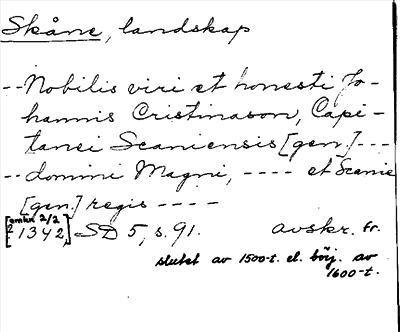 Skåne, landskap
-- Nobilis viri et honesti Jo-
hannis Cristinason, Capi-
tanei Scaniensis [gen.] ---
-- domini Magni, ---- et Scanie
[gen.] regis ----
[omkr 2/2
1342,] SD 5, s. 91. avskr. fr.
slutet av 1500-t. el. börj. av
1600-t.